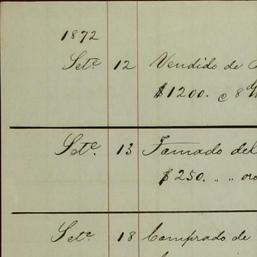 1872
Sete. 12 Vendido de
$1200. c 8
Sete. 13 Tomado del
$250. „ „ oro
Sete 18 Comprado de